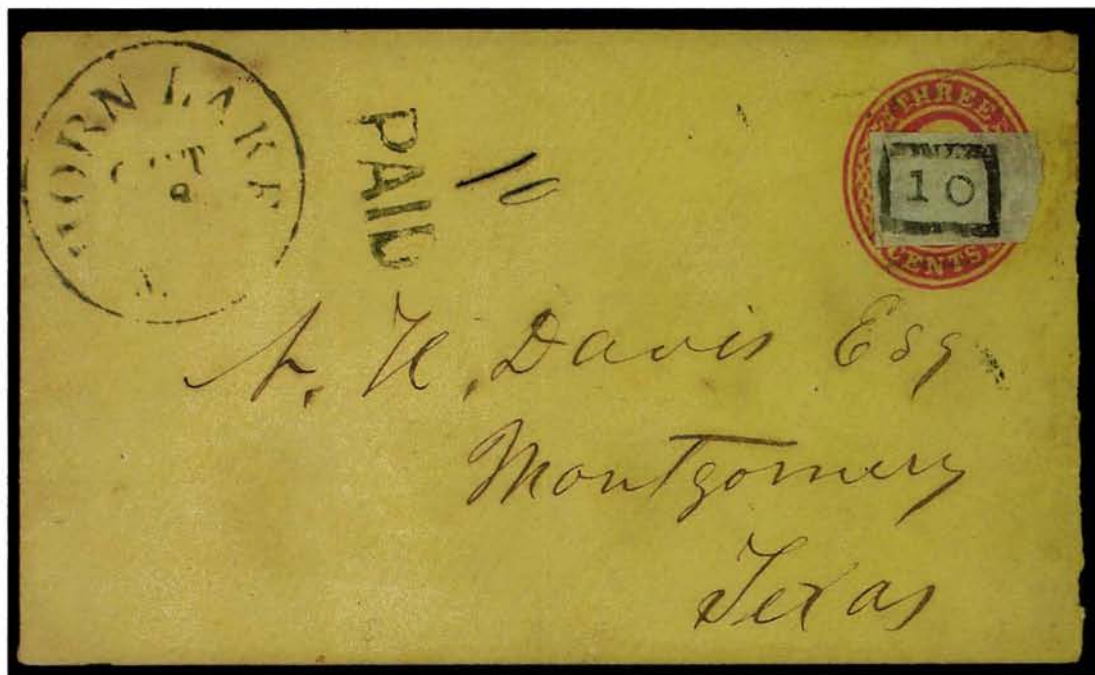 HORN LAKE
OCT
PAID
10
THREE
10
CENTS
N. H. Davis Esq
Montgomery
Texas